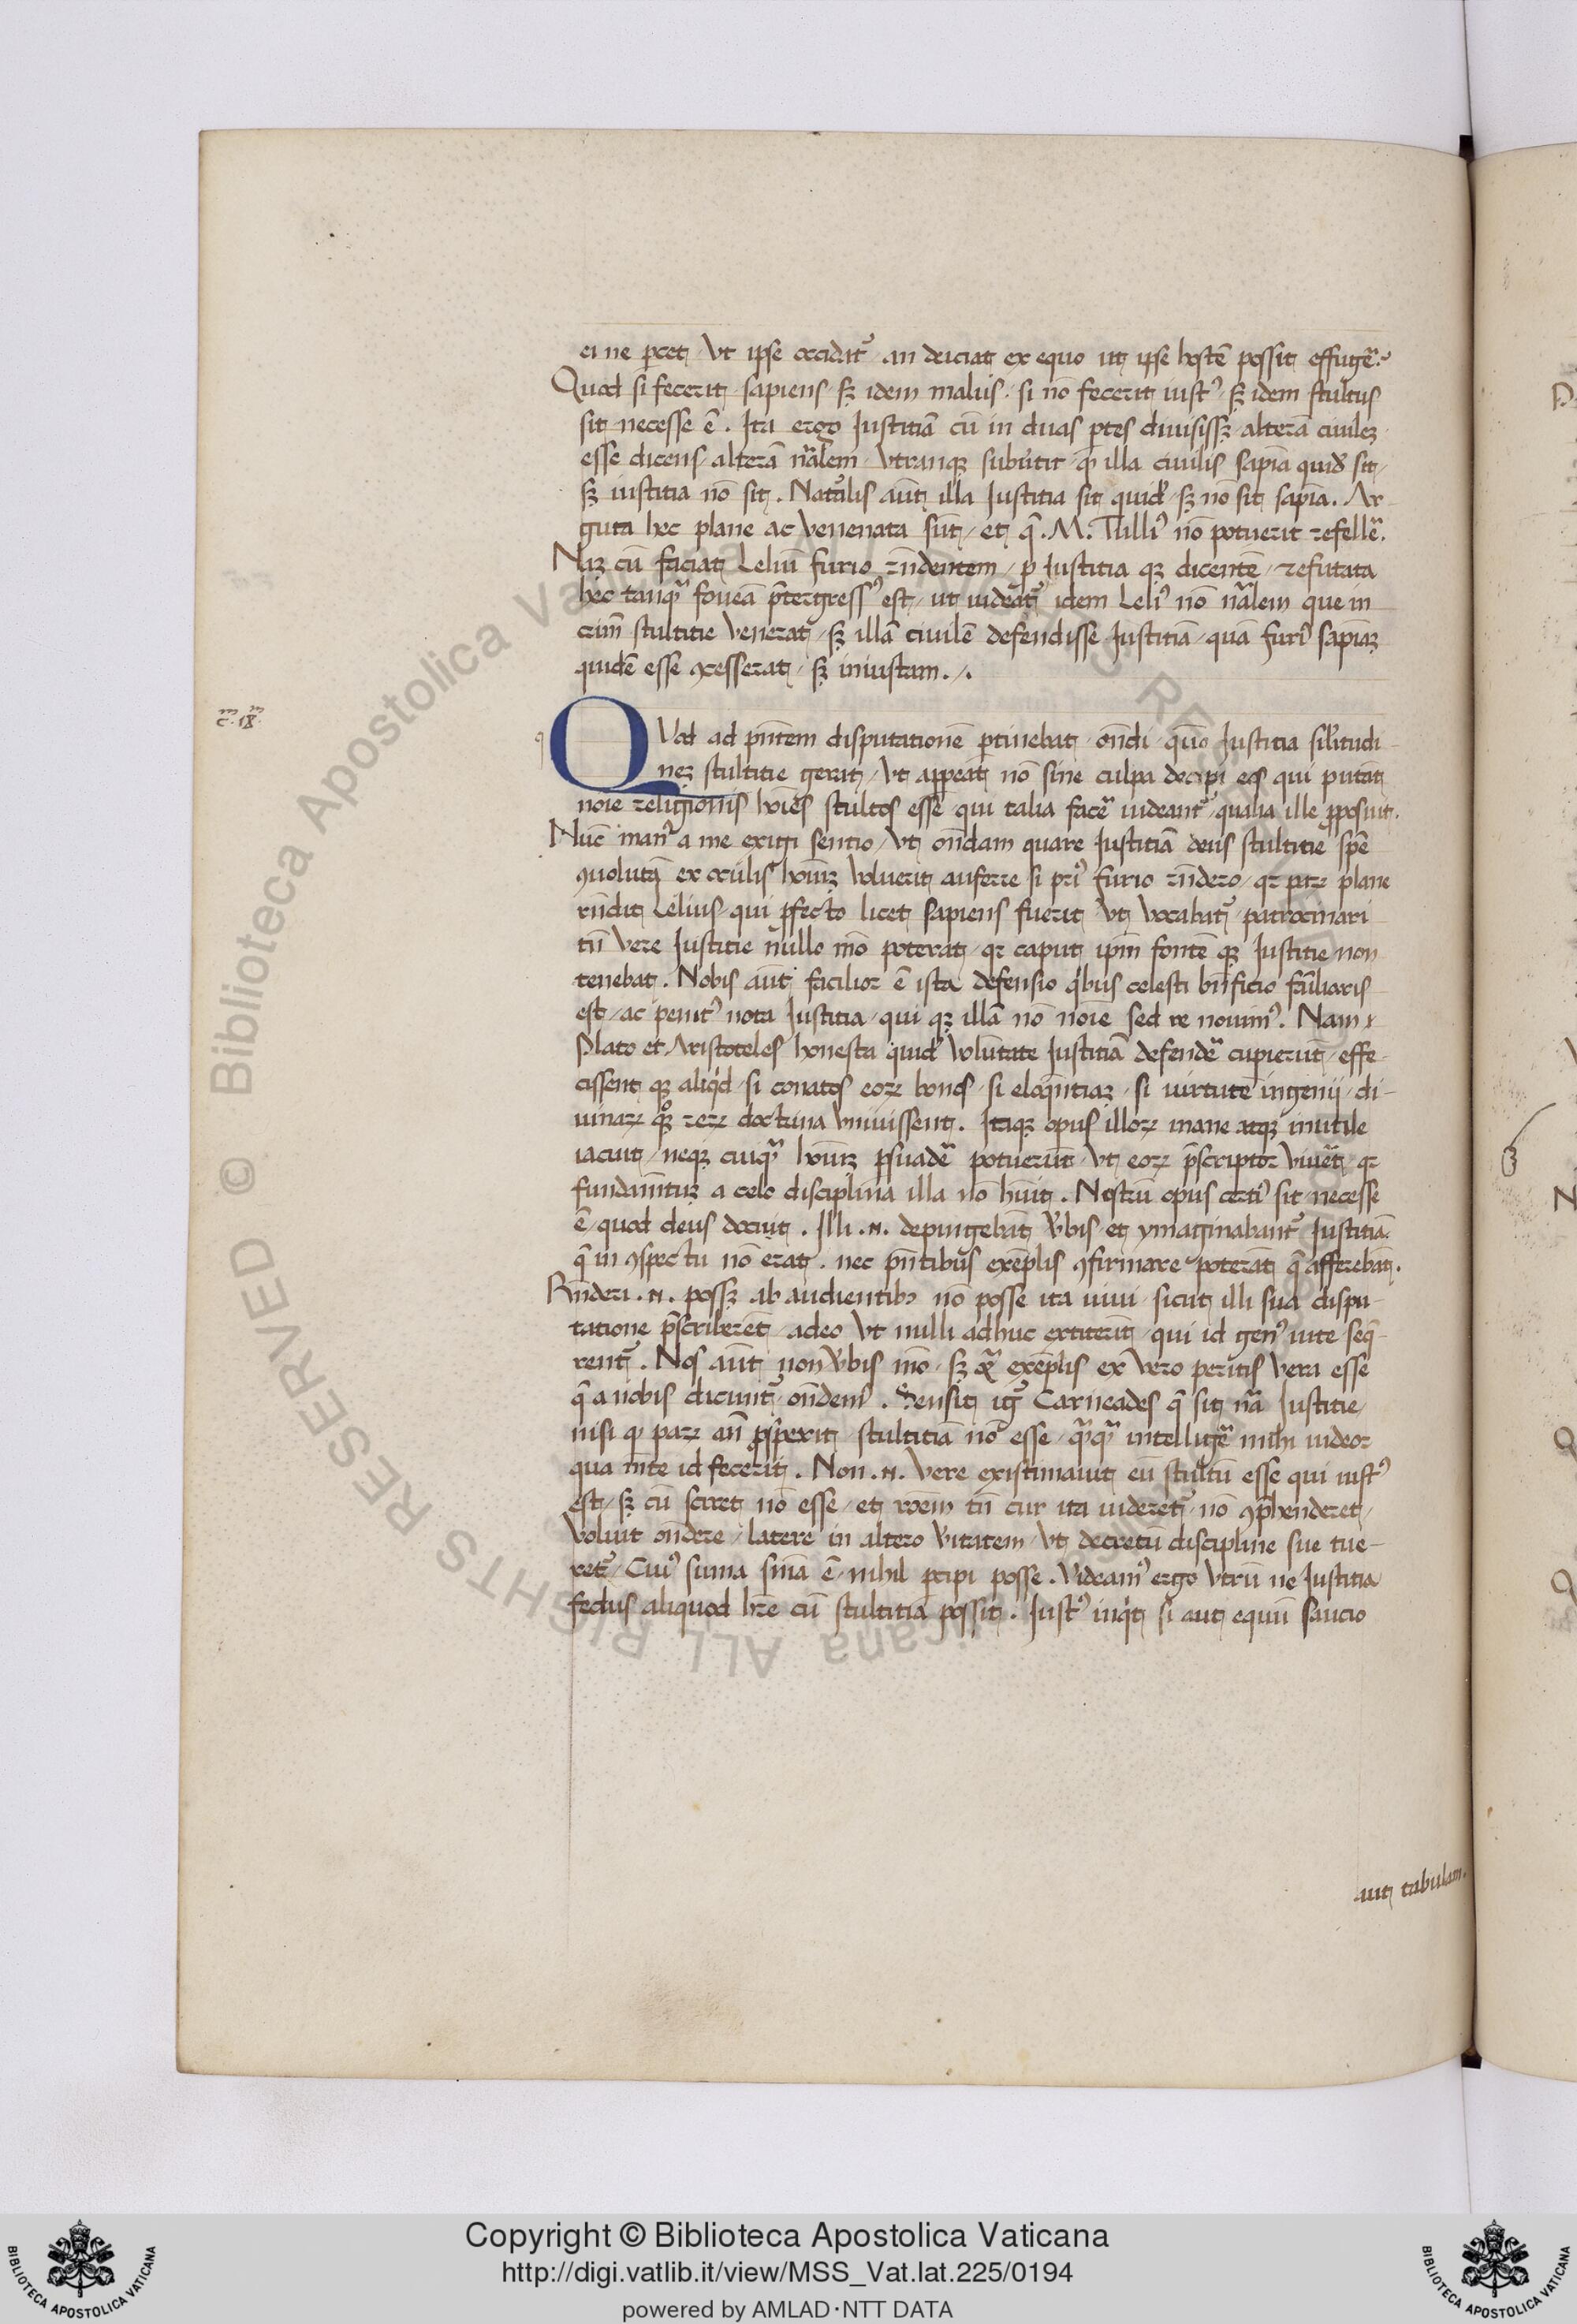 ei ne ꝑcet / vt ipse occidat᷑ . an deiciat ex equo ut ipse hostē possit effugẽ?
Quod si fecerit / sapiens / sꝫ idem malus . si nō fecerit iust᷒ / sꝫ idem stultus
sit necesse ē . Ita ergo Iustitiā cū in duas ꝑtes diuisissꝫ / alterā ciuileꝫ
esse dicens / alterā nr̄alem / vtranqꝫ subūtit / ꝙ illa ciuilis sapīa quid̄ sit /
sꝫ iustitia nō sit . Natūlis aūt illa Iustitia sit quid̄ / sꝫ nō sit sapīa . Ar
guta hec plane ac venenata sūt / et q̄ . M. Tulli᷒ nō potuerit refellẽ .
Naꝫ cū faciat Leliū furio rn̄dentem / ꝓ Iustitia qꝫ dicentē / refutata
hec tanqᷓ foueā p̄tergress᷒ est / ut uideat᷑ idem Leli᷒ nō nālem que in
crimī stultitie venerat / sꝫ illā ciuilē defendisse Iustitiā / quā furi᷒ sapīaꝫ
quidē esse ꝯcesserat / sꝫ iniustam . / .
c. 18.
QVod ad pn̄tem disputationē ꝑtinebat / on̄di / quō Iustitia sil̄itudi-
neꝫ stultitie gerit / vt appeat nō sine culpa decipi eos qui putāt
noīe religionis hoīes stultos esse / qui talia facẽ uideant᷑ / qualia ille ꝓposuit .
Nūc man᷒ a me exigi sentio / vt on̄dam quare Iustitiā deus stultitie spē
ꝯuolutā ex oculis hoīuꝫ voluerit auferre si pri᷒ furio rn̄dero / qꝛ paꝝ plane
rn̄dit Lelius / qui ꝓfecto licet sapiens fuerit vt vocabat᷑ / patrocinari
tn̄ vere Iustitie nullo mō poterat / qꝛ caput ipm̄ fontē qꝫ Iustitie non
tenebat . Nobis aūt facilior ē ista defensio qͥbus celesti bn̄ficio fāiliaris
est / ac penit᷒ nota Iustitia / qui qꝫ illā nō noīe sed re nouim᷒ . Nam
Plato et Aristoteles honesta quid̄ volūtate Iustitiā defendẽ cupierūt / effe
cissent qꝫ aliqͥd / si conatos eoꝝ bonos / si eloq̄ntiaꝫ / si uirtutē ingenij / di-
uinaꝝ qͦꝫ reꝝ doctrina vniuissent . Itaqꝫ opus illoꝝ inane atqꝫ inutile
iacuit / neqꝫ cuiqᷓ hoīuꝫ ꝑsuadẽ potuerūt / vt eoꝝ p̄scriptor viuet / qꝛ
fundam̄tuꝫ a celo disciplina illa nō hūit . Nostrū opus certi᷒ sit necesse
ē / quod deus docuit . Illi . n . depingebāt v̄bis / et ymaginabant᷑ Iustitiā
q̄ in ꝯspectu nō erat . nec pn̄tibus exēplis ꝯfirmare poterāt q̄ affirebāt .
Rn̄deri . n . possꝫ ab audientibꝫ nō posse ita uiui / sicut illi sua dispu-
tatione p̄scriberēt / adeo vt nulli adhuc extiterīt / qui id gen᷒ uite seq̄-
rent᷑ . Nos aūt non v̄bis mō / sꝫ et exēplis ex vero petitis vera esse
q̄ a nobis dicunt᷑ / on̄dem᷒ . Sensit ig᷑ Carneades q̄ sit nā Iustitie /
nisi ꝙ paꝝ an̄ ꝓspexit / stultitiā nō esse / qᷓqᷓ intelligẽ mihi uideor
qua mēte id fecerit . Non . n . vere existimauit eū stultū esse qui iust᷒
est / sꝫ cū sciret nō esse / et roēm tn̄ cur ita videret᷑ / nō ꝯp̄henderet /
voluit on̄dere / latere in altero v̄itatem / vt decretū discipline sue tue-
ret᷑ / Cui᷒ suma snīa ē / nihil ꝑcipi posse . Videam᷒ ergo vtrū ne Iustitia
fedus aliquod hr̄e cū stultitia possit . Iust᷒ inqͥt si aut equū saucio
aut tabulam .
Copyright © Biblioteca Apostolica Vaticana
http://digi.vatlib.it/view/MSS_Vat.lat.225/0194
powered by AMLAD·NTT DATA
BIBLIOTECA APOSTOLICA VATICANA
BIBLIOTECA APOSTOLICA VATICANA